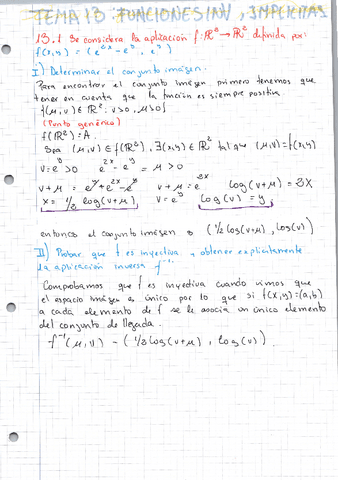 TEMA 13: FUNCIONES INV, IMPLICITAS
13.1 Se considera la aplicación f: ℝ² → ℝ² definida por:
f(x,y) = (e²ˣ - eʸ, eʸ)
I) Determinar el conjunto imágen:
Para encontrar el conjunto imágen, primero tenemos que
tener en cuenta que la función es siempre positiva
f(μ,v) ∈ ℝ²: v>0, μ>0
(Punto genérico)
f(ℝ²) = A.
Sea (μ,v) ∈ f(ℝ²), ∃(x,y) ∈ ℝ² tal que (μ,v) = f(x,y)
v = eʸ > 0 e²ˣ - eʸ = μ > 0
v+μ = eʸ + e²ˣ - eʸ v+μ = e²ˣ log(v+μ) = 2x
x = ½ log(v+μ) v = eʸ log(v) = y
entonces el conjunto imágen es (½ log(v+μ), log(v))
II) Probar que f es inyectiva y obtener explícitamente
la aplicación inversa f⁻¹.
Comprobamos que f es inyectiva cuando vimos que
el espacio imágen es único por lo que si f(x,y) = (a,b)
a cada elemento de f se le asocia un único elemento
del conjunto de llegada.
f⁻¹(μ,v) = (½ log(v+μ), log(v)).